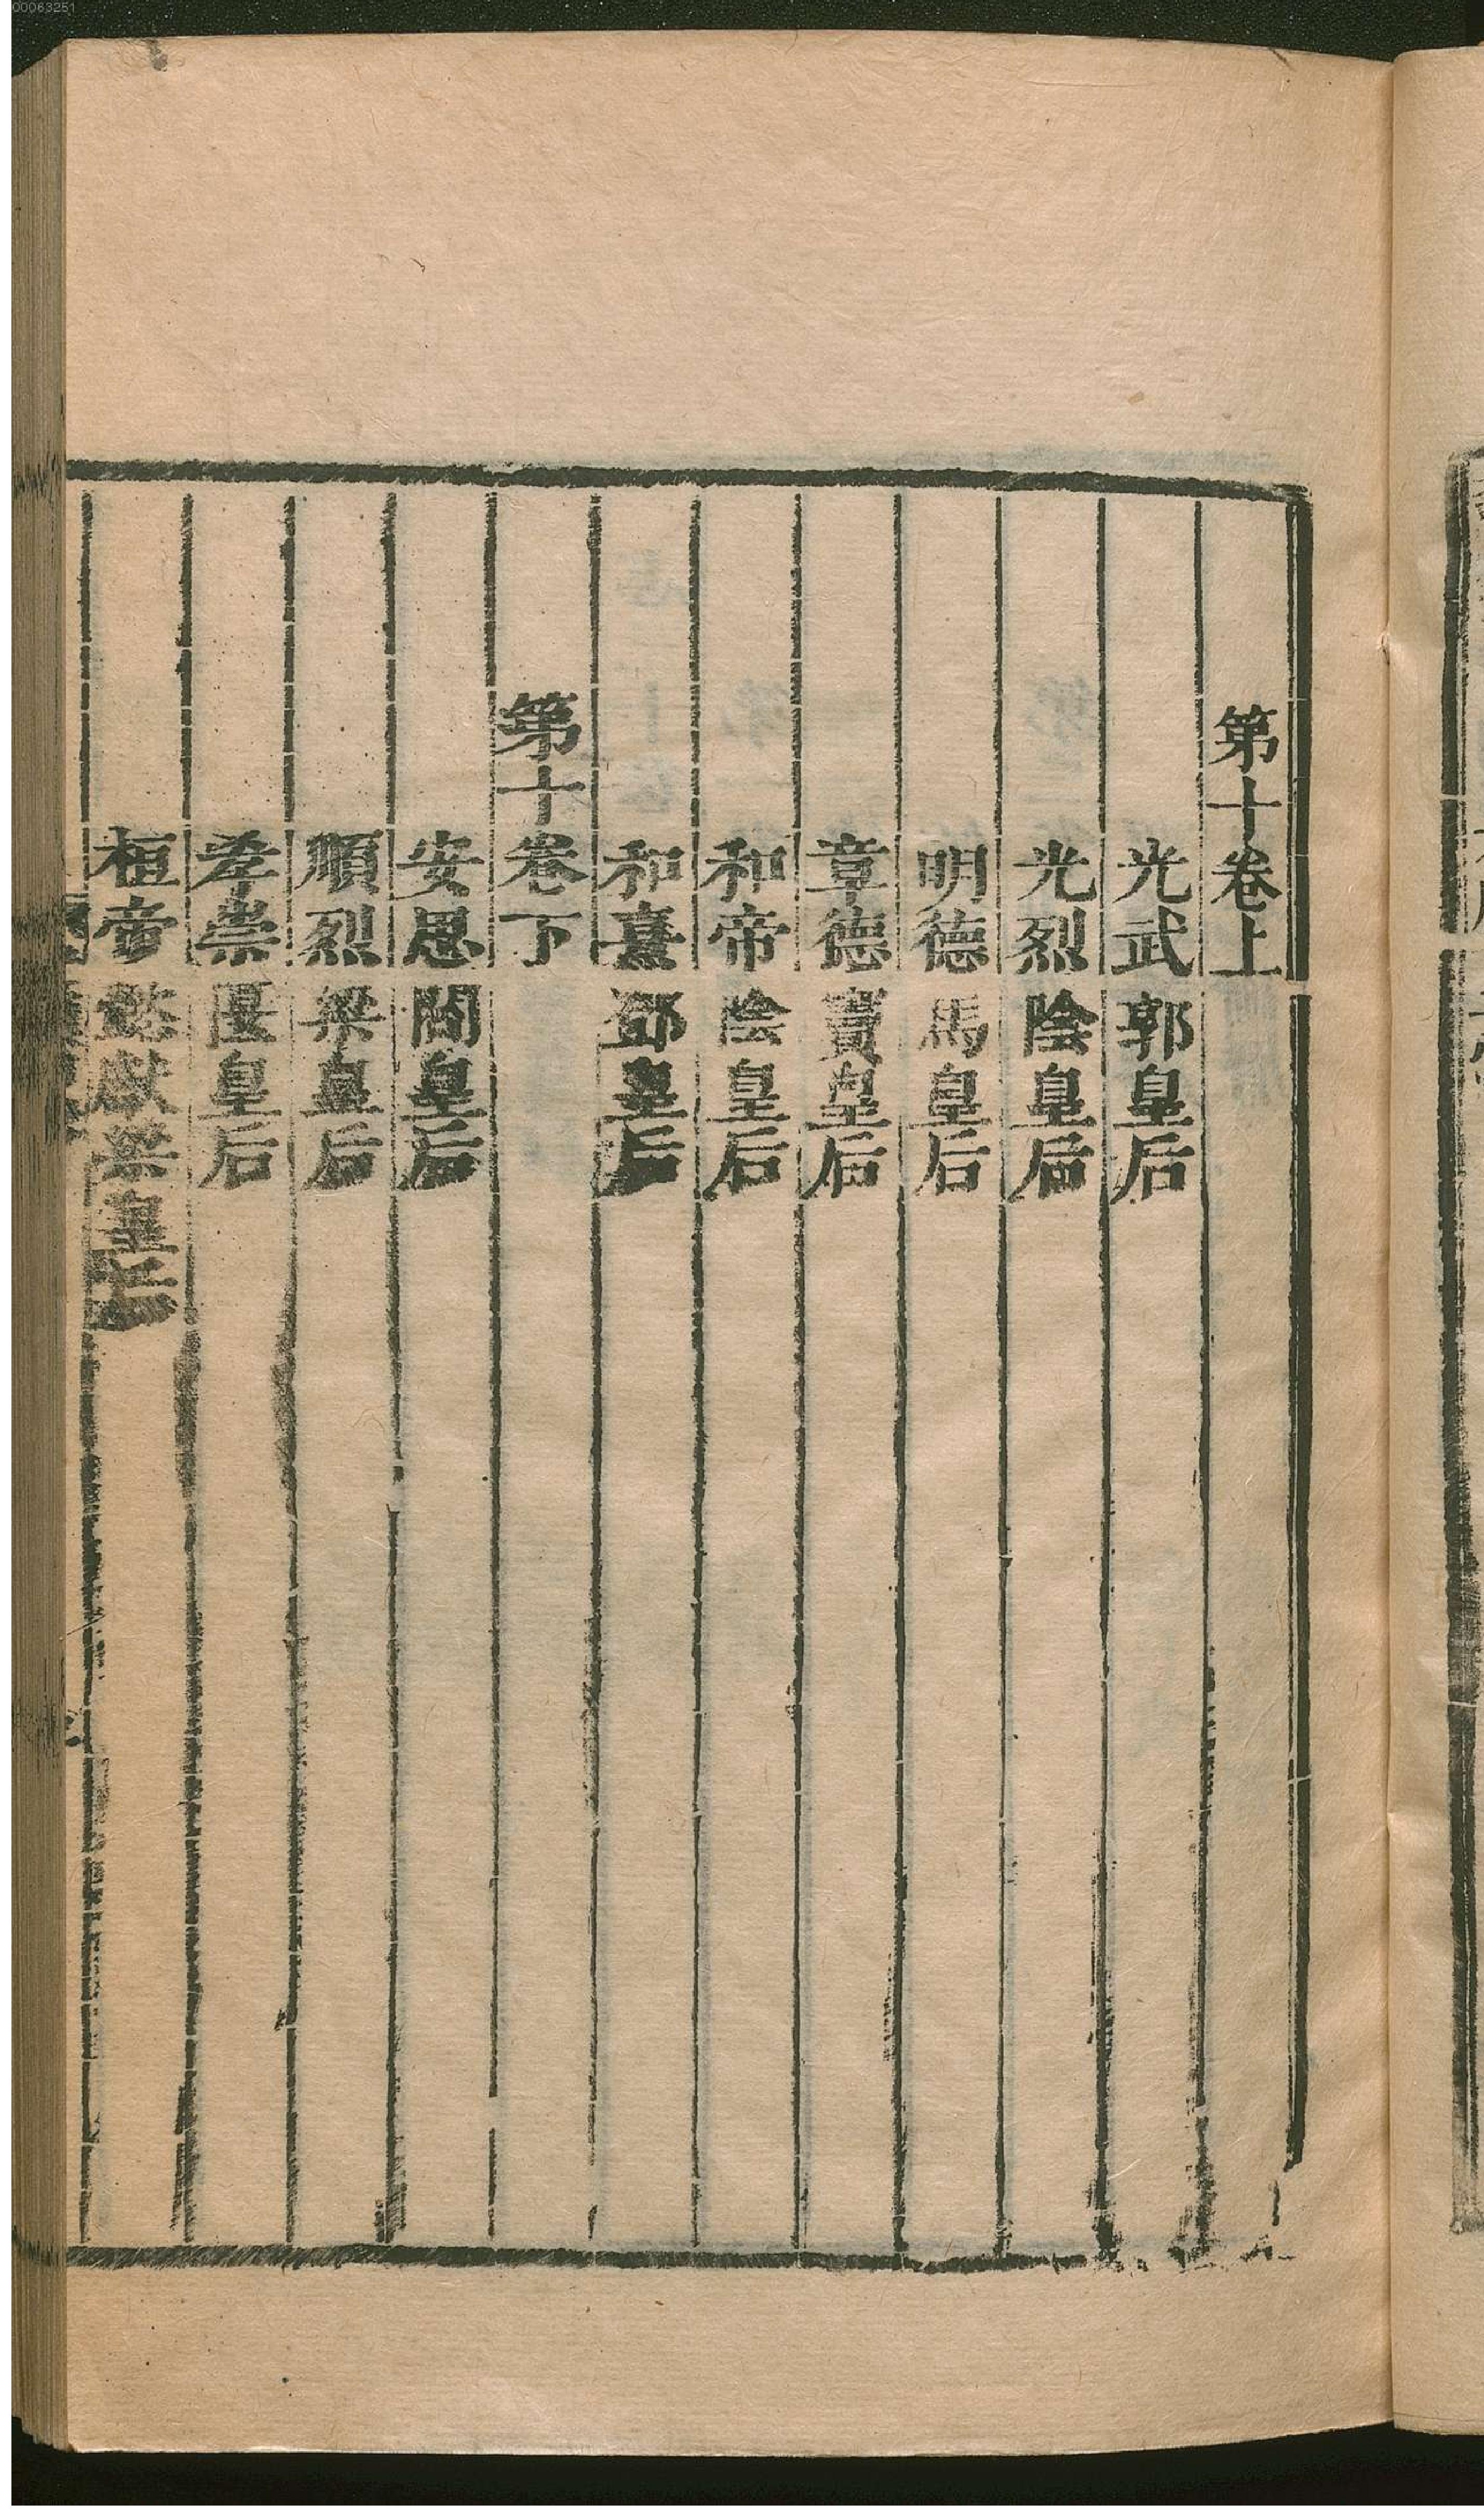 00063251
第十卷上
光武郭皇后
光烈陰皇后
明德馬皇后
章德竇皇后
和帝陰皇后
和熹鄧皇后
第十卷下
安思閻皇后
順烈梁皇后
孝崇匽皇后
桓帝懿獻梁皇后